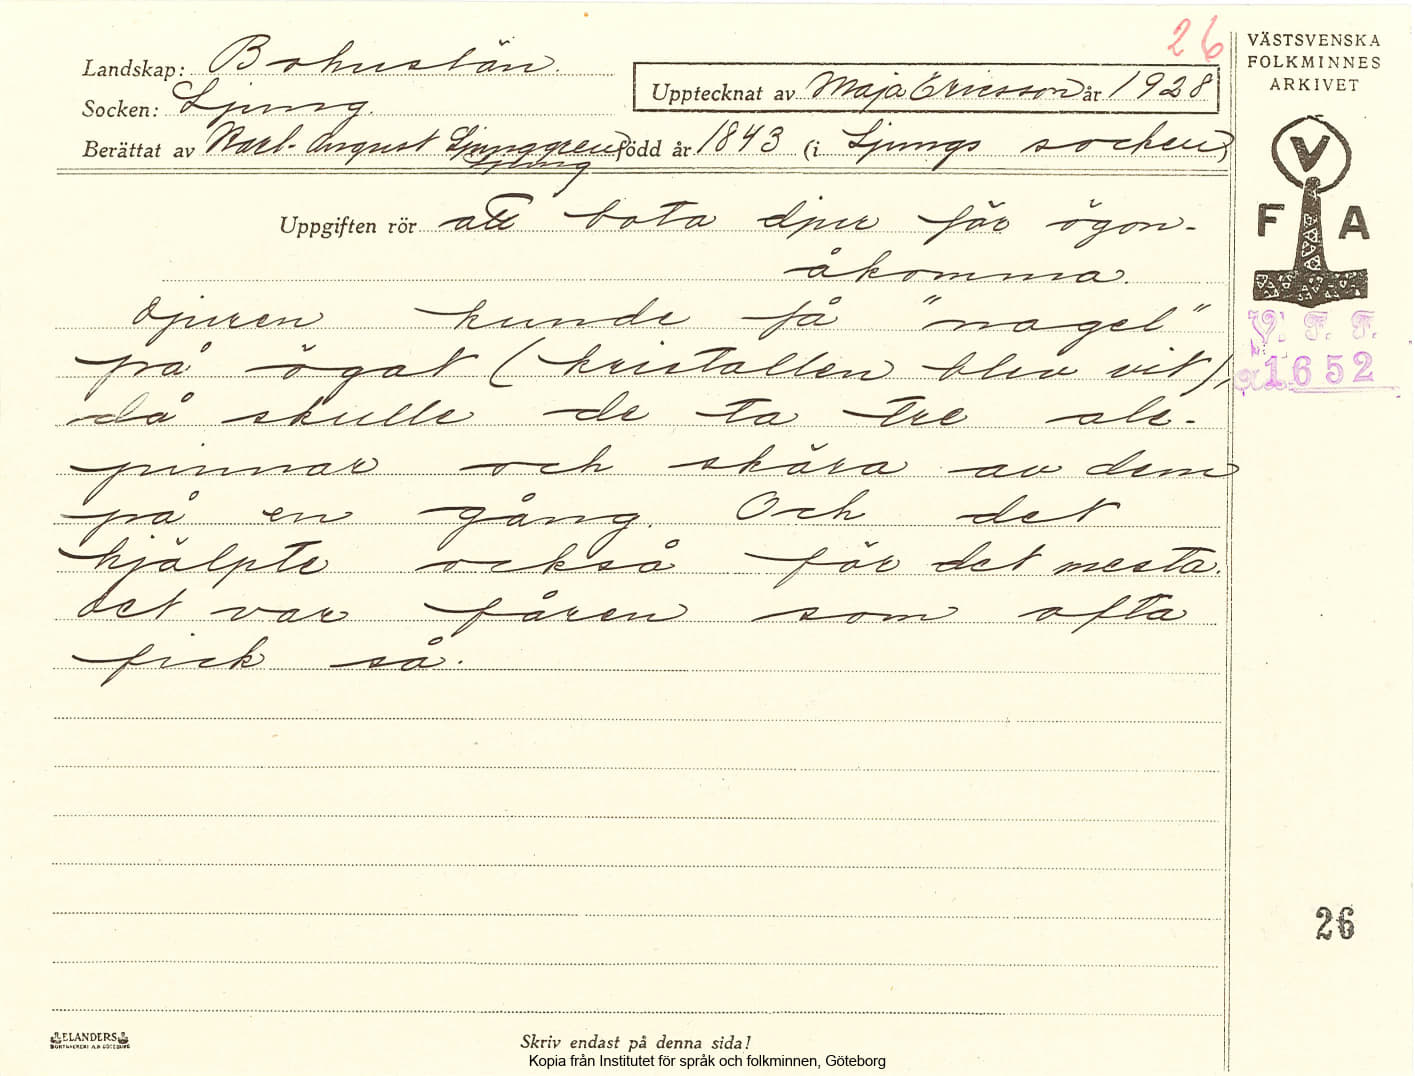 26
VÄSTSVENSKA
FOLKMINNES
ARKIVET
Landskap: Bohuslän.
Upptecknat av Maja Ericsson år 1928
Socken: Ljung.
Berättat av Karl-August Ljunggren född år 1843 (i Ljungs socken)
Ljung
V
F A
Uppgiften rör att bota djur för ögon-
åkomma.
Djuren kunde få "nagel"
på ögat (kristallen blev vit),
då skulle de ta tre ale-
pinnar och skära av dem
på en gång. Och det
hjälpte också för det mesta.
Det var fåren som ofta
fick så.
V. F. F.
1652
26
ELANDERS
BOKTRYCKERI A.B. GÖTEBORG
Skriv endast på denna sida!
Kopia från Institutet för språk och folkminnen, Göteborg